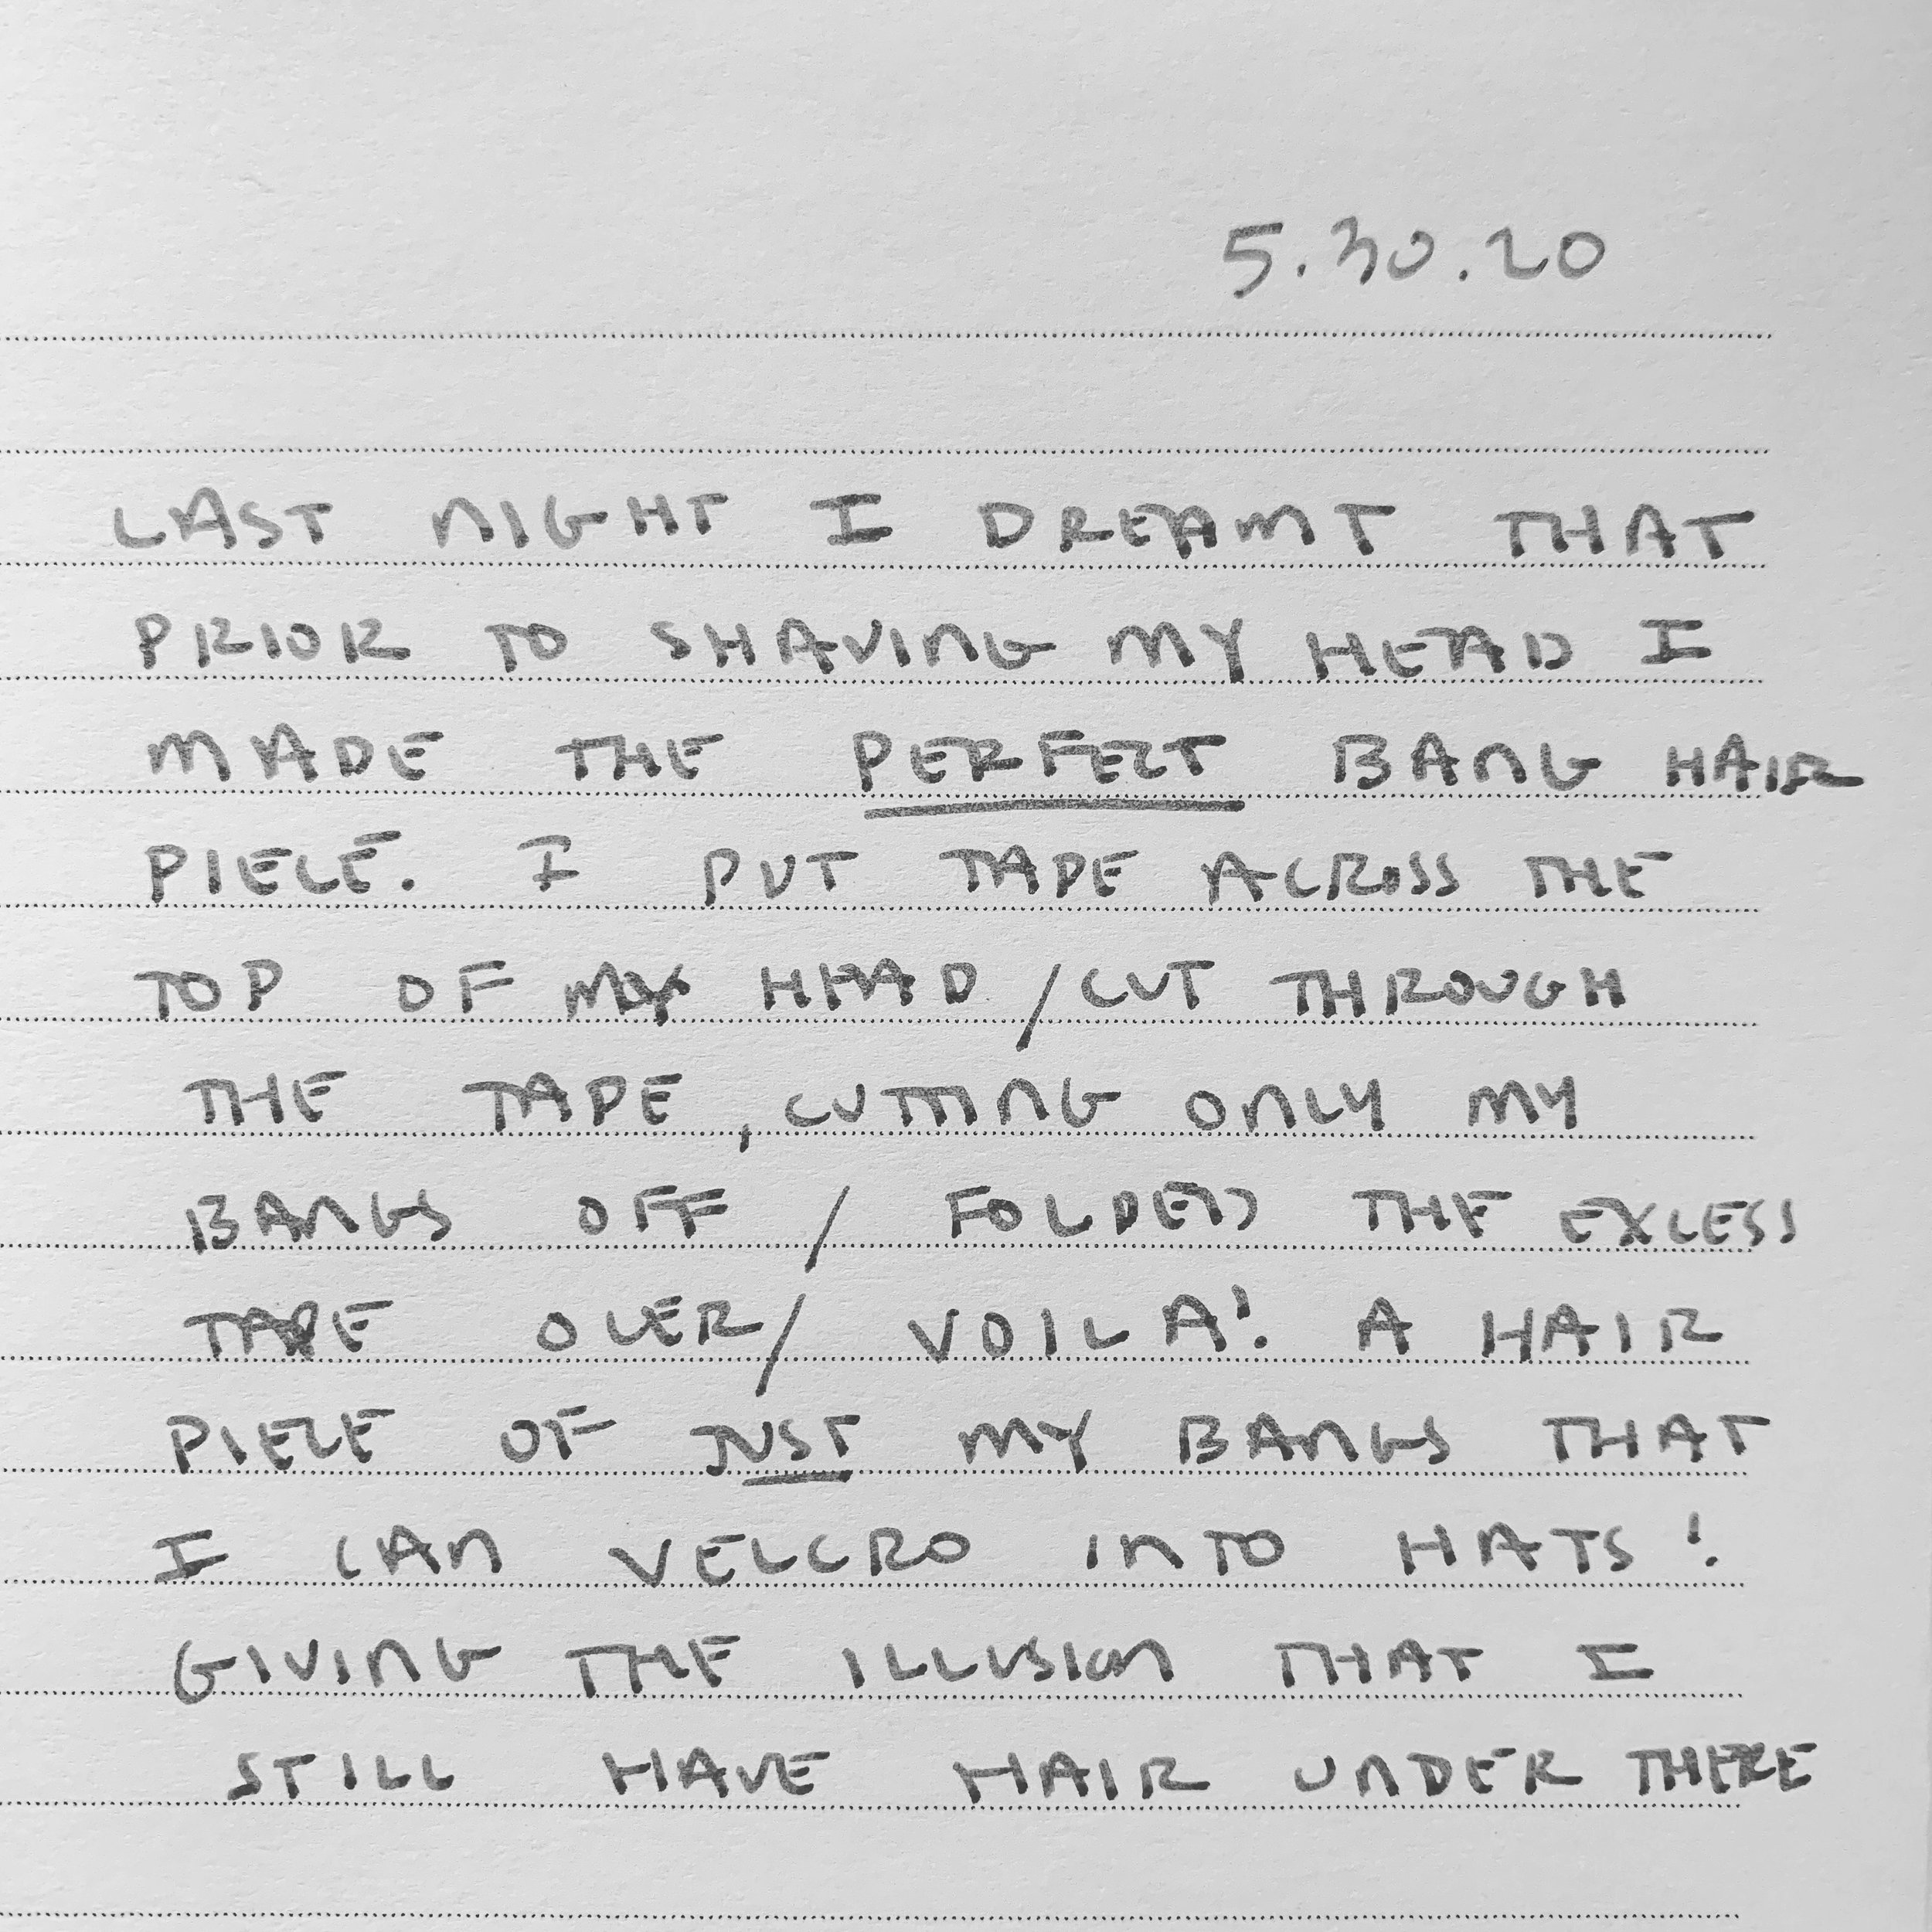 5.30.20
LAST NIGHT I DREAMT THAT
PRIOR TO SHAVING MY HEAD I
MADE THE PERFECT BANG HAIR
PIECE. I PUT TAPE ACROSS THE
TOP OF MY HEAD / CUT THROUGH
THE TAPE, CUTTING ONLY MY
BANGS OFF / FOLDED THE EXCESS
TAPE OVER / VOILA! A HAIR
PIECE OF JUST MY BANGS THAT
I CAN VELCRO INTO HATS!
GIVING THE ILLUSION THAT I
STILL HAVE HAIR UNDER THERE